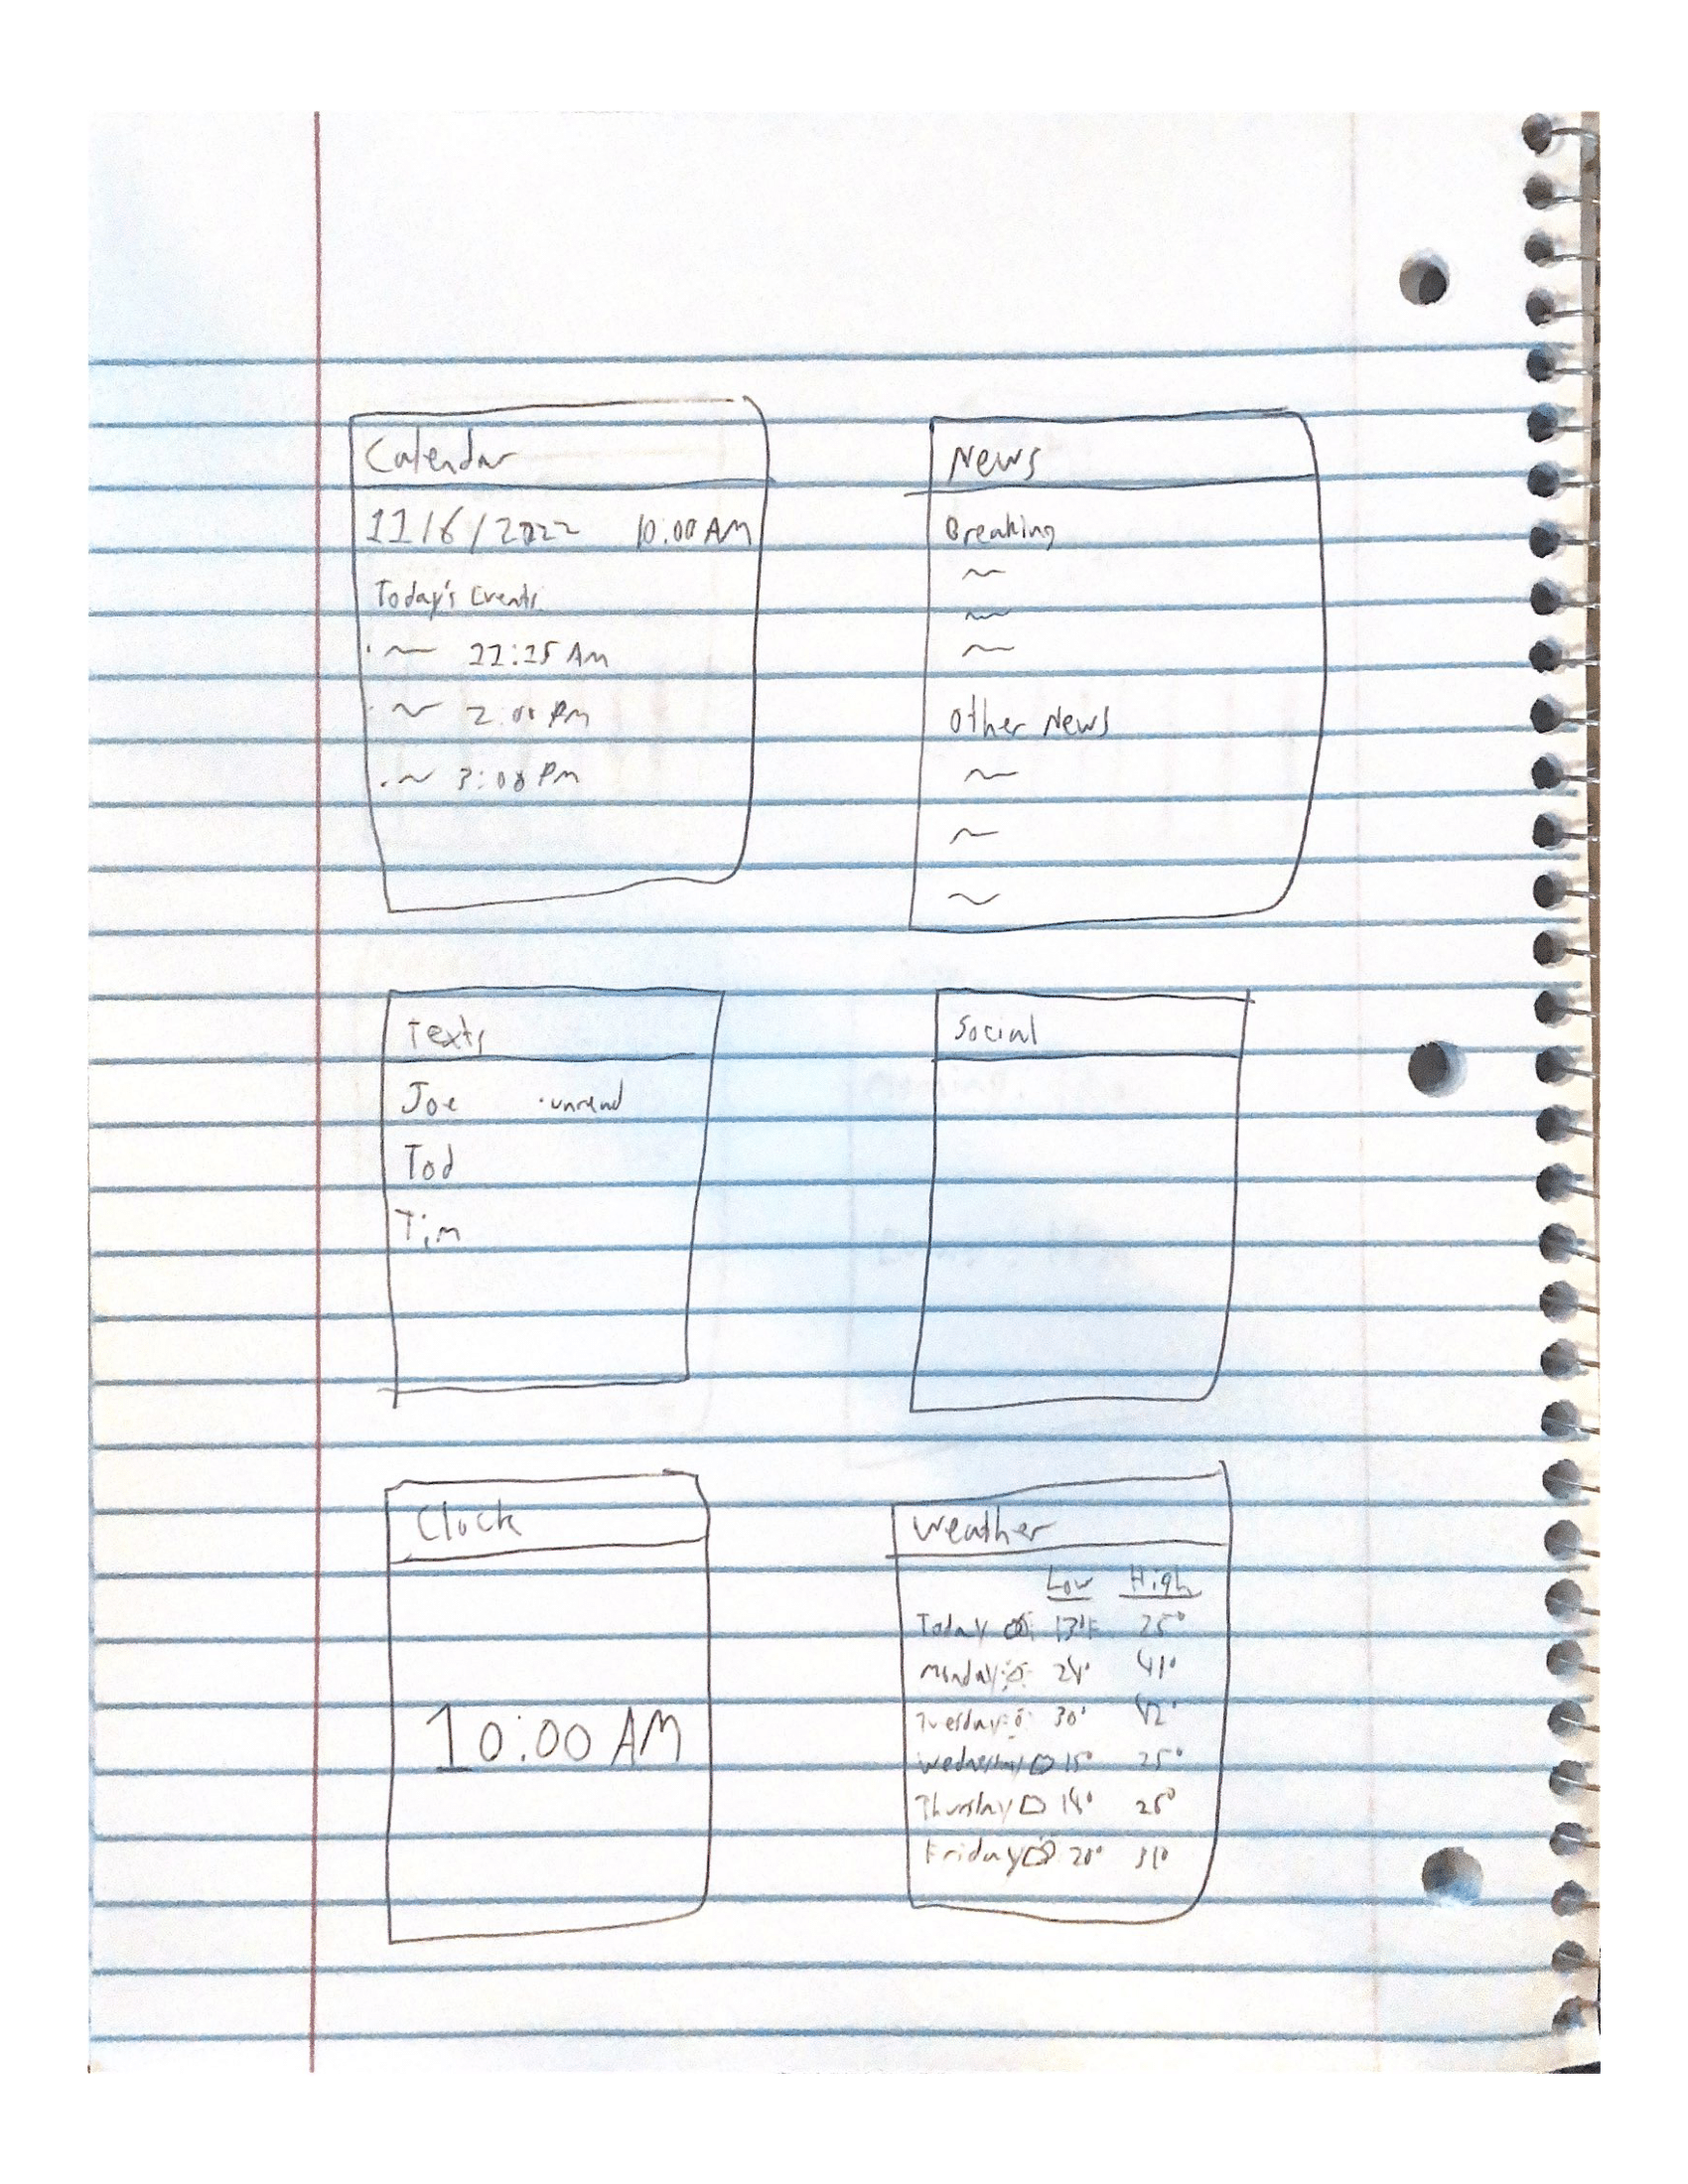 Calendar
11/6/2022 10:00 AM
Today's Events
11:15 AM
2:00 PM
3:00 PM
News
Breaking
Other News
Texts
Joe · unread
Tod
Tim
Social
Clock
10:00 AM
Weather
Low High
Today 13°F 25°
Monday 28° 41°
Tuesday 30° 42°
Wednesday 15° 25°
Thursday 18° 26°
Friday 20° 31°